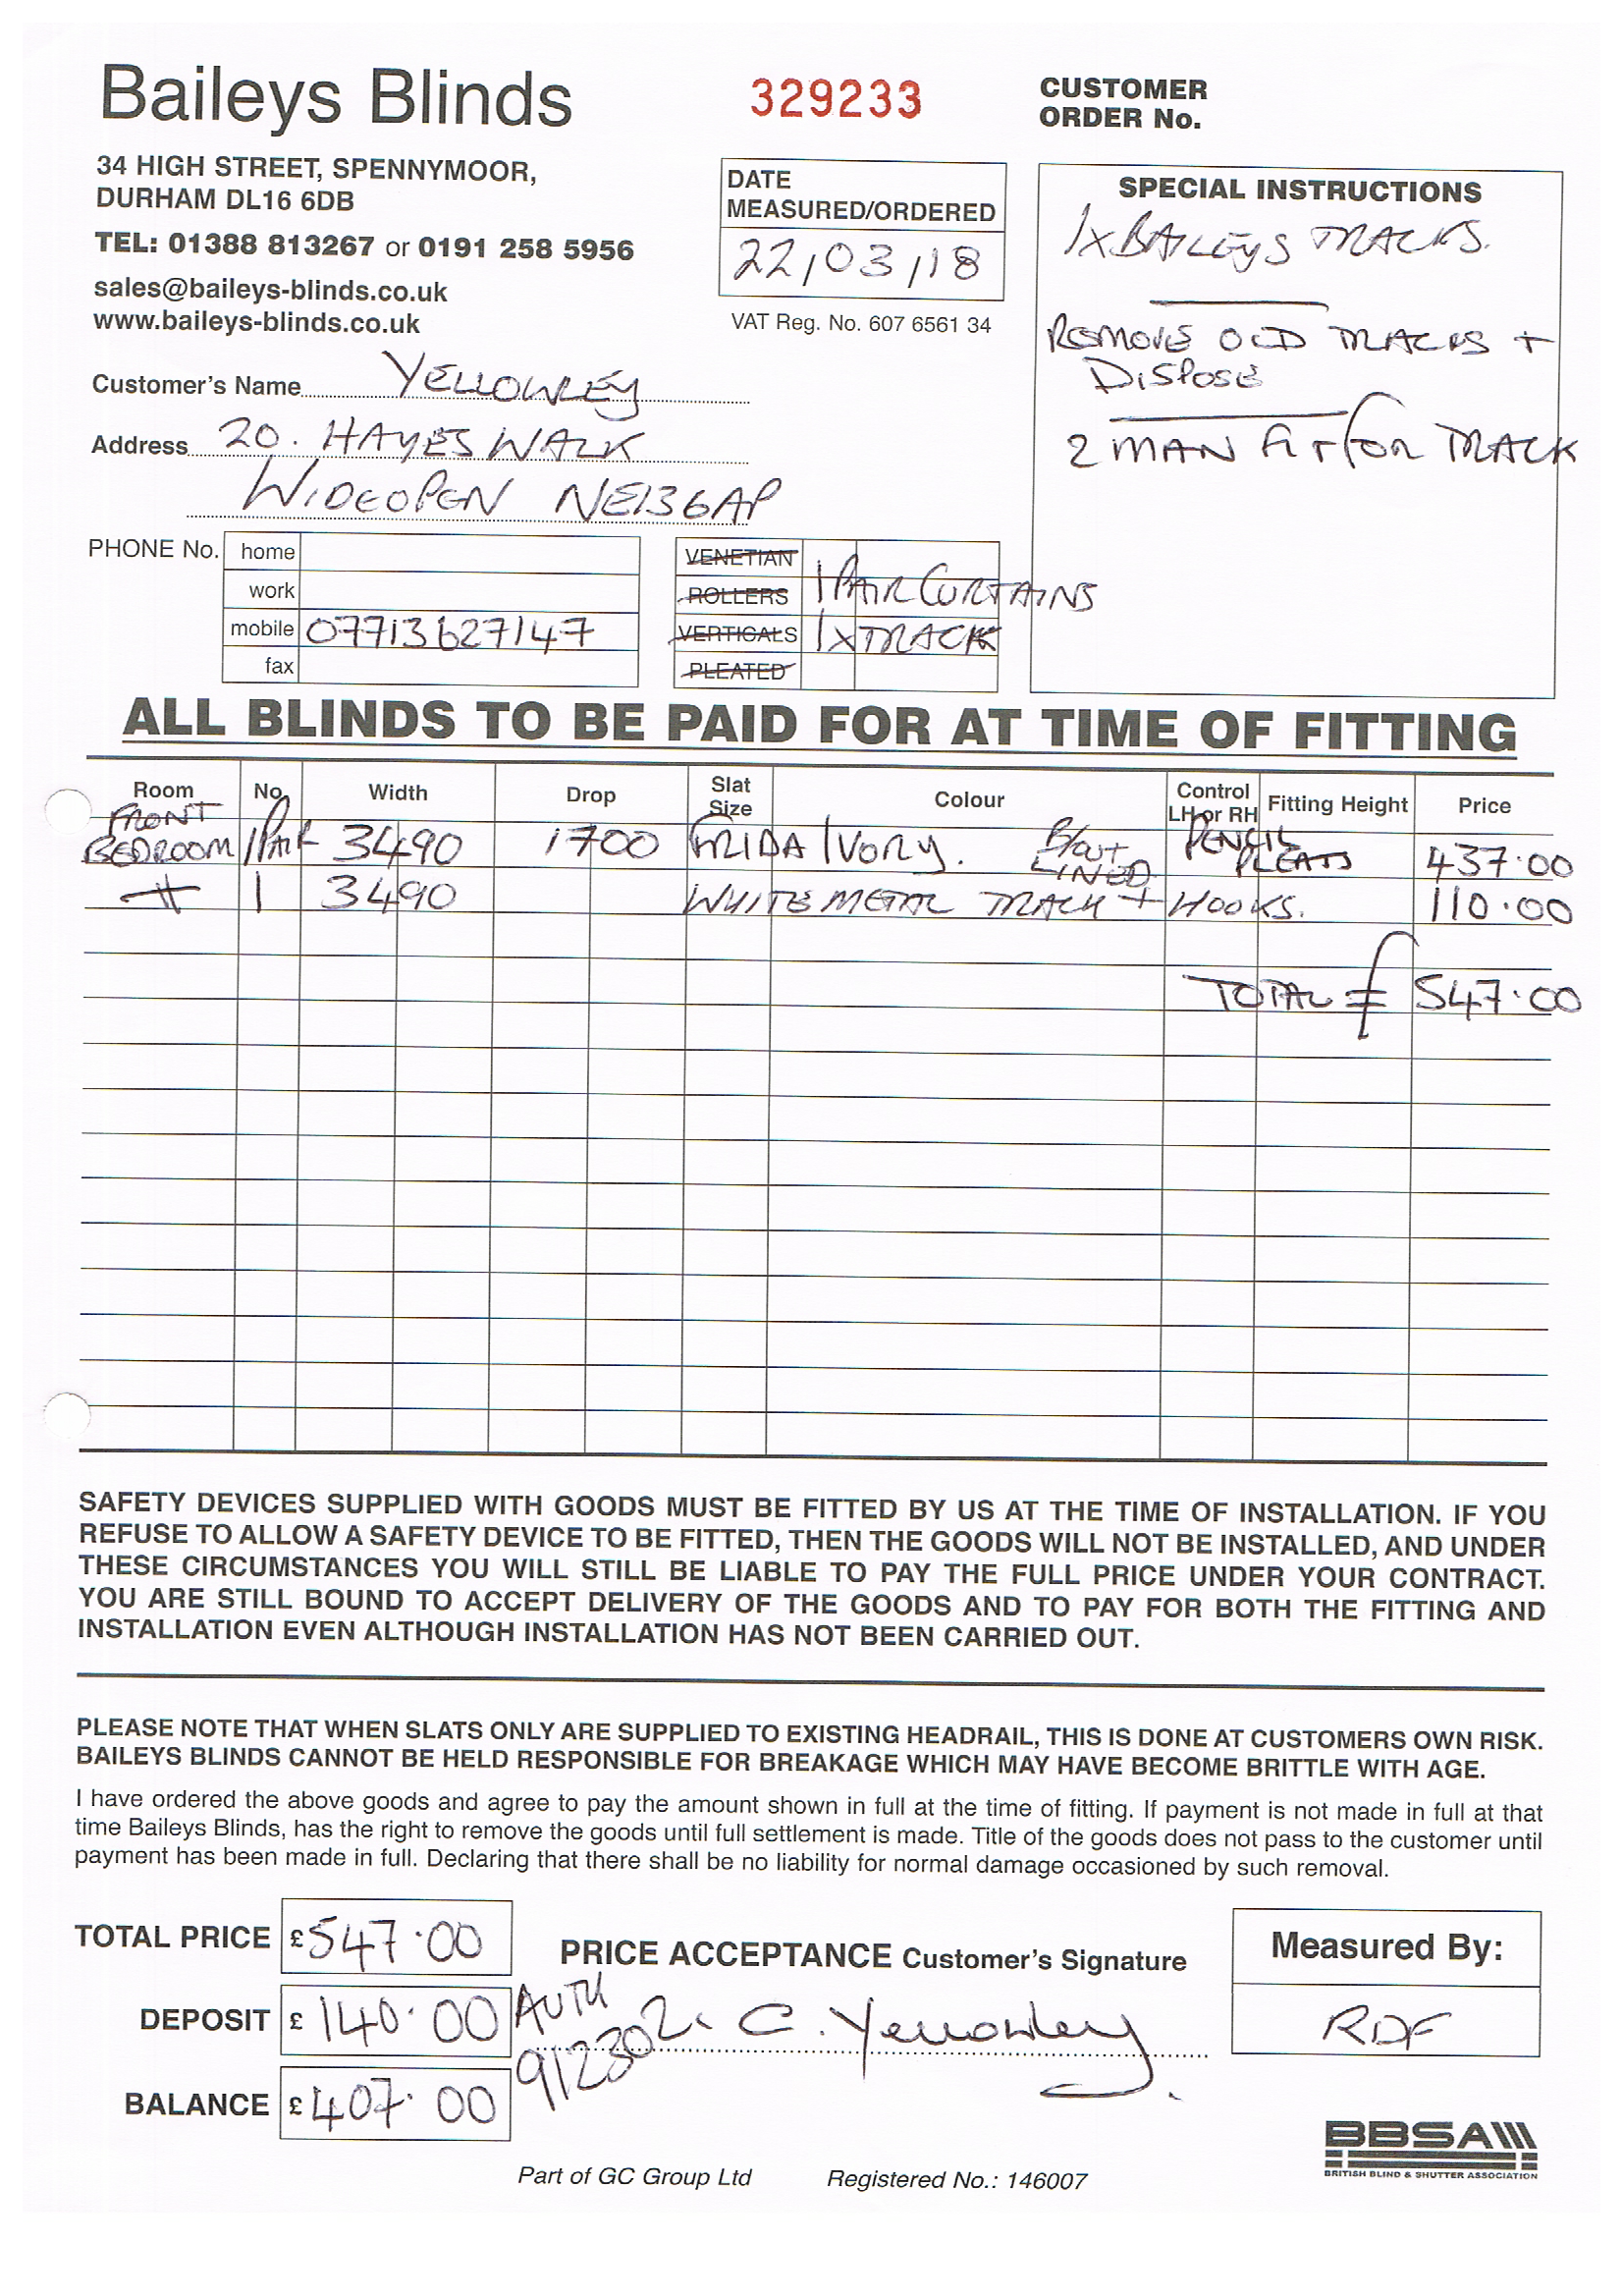 Baileys Blinds
329233
CUSTOMER
ORDER No.
34 HIGH STREET, SPENNYMOOR,
DURHAM DL16 6DB
TEL: 01388 813267 or 0191 258 5956
sales@baileys-blinds.co.uk
www.baileys-blinds.co.uk
DATE
MEASURED/ORDERED
22/03/18
VAT Reg. No. 607 6561 34
SPECIAL INSTRUCTIONS
1x BAILEYS TRACKS.
REMOVE OLD TRACKS +
DISPOSE
2 MAN FIT FOR TRACK
Customer's Name YELLOWLEY
Address 20. HAYES WALK
WIDEOPEN NE136AP
PHONE No. home
work
mobile 07713627147
fax
VENETIAN
ROLLERS 1 PAIR CURTAINS
VERTICALS 1x TRACK
PLEATED
ALL BLINDS TO BE PAID FOR AT TIME OF FITTING
Room No. Width Drop Slat Size Colour Control LH or RH Fitting Height Price
FRONT BEDROOM 1 PAIR 3490 1700 FRIDA IVORY. B/OUT LINED PENCIL PLEATS 437.00
1 3490 WHITE METAL TRACK + HOOKS. 110.00
TOTAL £ 547.00
SAFETY DEVICES SUPPLIED WITH GOODS MUST BE FITTED BY US AT THE TIME OF INSTALLATION. IF YOU
REFUSE TO ALLOW A SAFETY DEVICE TO BE FITTED, THEN THE GOODS WILL NOT BE INSTALLED, AND UNDER
THESE CIRCUMSTANCES YOU WILL STILL BE LIABLE TO PAY THE FULL PRICE UNDER YOUR CONTRACT.
YOU ARE STILL BOUND TO ACCEPT DELIVERY OF THE GOODS AND TO PAY FOR BOTH THE FITTING AND
INSTALLATION EVEN ALTHOUGH INSTALLATION HAS NOT BEEN CARRIED OUT.
PLEASE NOTE THAT WHEN SLATS ONLY ARE SUPPLIED TO EXISTING HEADRAIL, THIS IS DONE AT CUSTOMERS OWN RISK.
BAILEYS BLINDS CANNOT BE HELD RESPONSIBLE FOR BREAKAGE WHICH MAY HAVE BECOME BRITTLE WITH AGE.
I have ordered the above goods and agree to pay the amount shown in full at the time of fitting. If payment is not made in full at that
time Baileys Blinds, has the right to remove the goods until full settlement is made. Title of the goods does not pass to the customer until
payment has been made in full. Declaring that there shall be no liability for normal damage occasioned by such removal.
TOTAL PRICE £547.00
PRICE ACCEPTANCE Customer's Signature
Measured By:
DEPOSIT £ 140.00
AUTH
C. Yellowley
RDF
BALANCE £ 407.00
BBSA
BRITISH BLIND & SHUTTER ASSOCIATION
Part of GC Group Ltd Registered No.: 146007